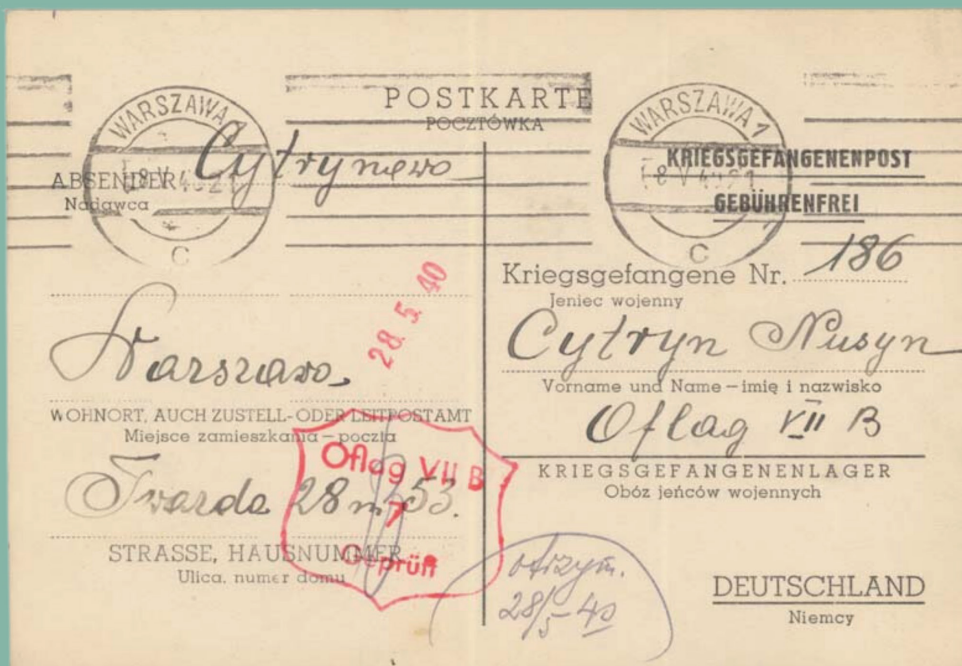 POSTKARTE
POCZTÓWKA
WARSZAWA 1
C
ABSENDER Cytrynowa
Nadawca
Warszawa
WOHNORT, AUCH ZUSTELL- ODER LEITPOSTAMT
Miejsce zamieszkania – poczta
Twarda 28 m 53.
STRASSE, HAUSNUMMER
Ulica, numer domu
28. 5. 40
Oflag VII B
7
Geprüft
WARSZAWA 1
C
KRIEGSGEFANGENENPOST
GEBÜHRENFREI
Kriegsgefangene Nr. 186
Jeniec wojenny
Cytryn Nusyn
Vorname und Name – imię i nazwisko
Oflag VII B
KRIEGSGEFANGENENLAGER
Obóz jeńców wojennych
otrzym.
28/5 - 40
DEUTSCHLAND
Niemcy